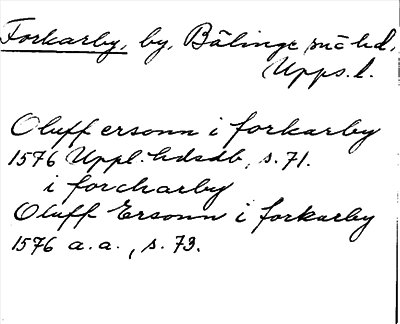 Forkarby, by, Bälinge sn o hd,
Upps. l.
Oluff ersonn i forkarby
1576 Uppl. hdsdb, s. 71.
i forcharby
Oluff Ersonn i forkarby
1576 a.a., s. 73.